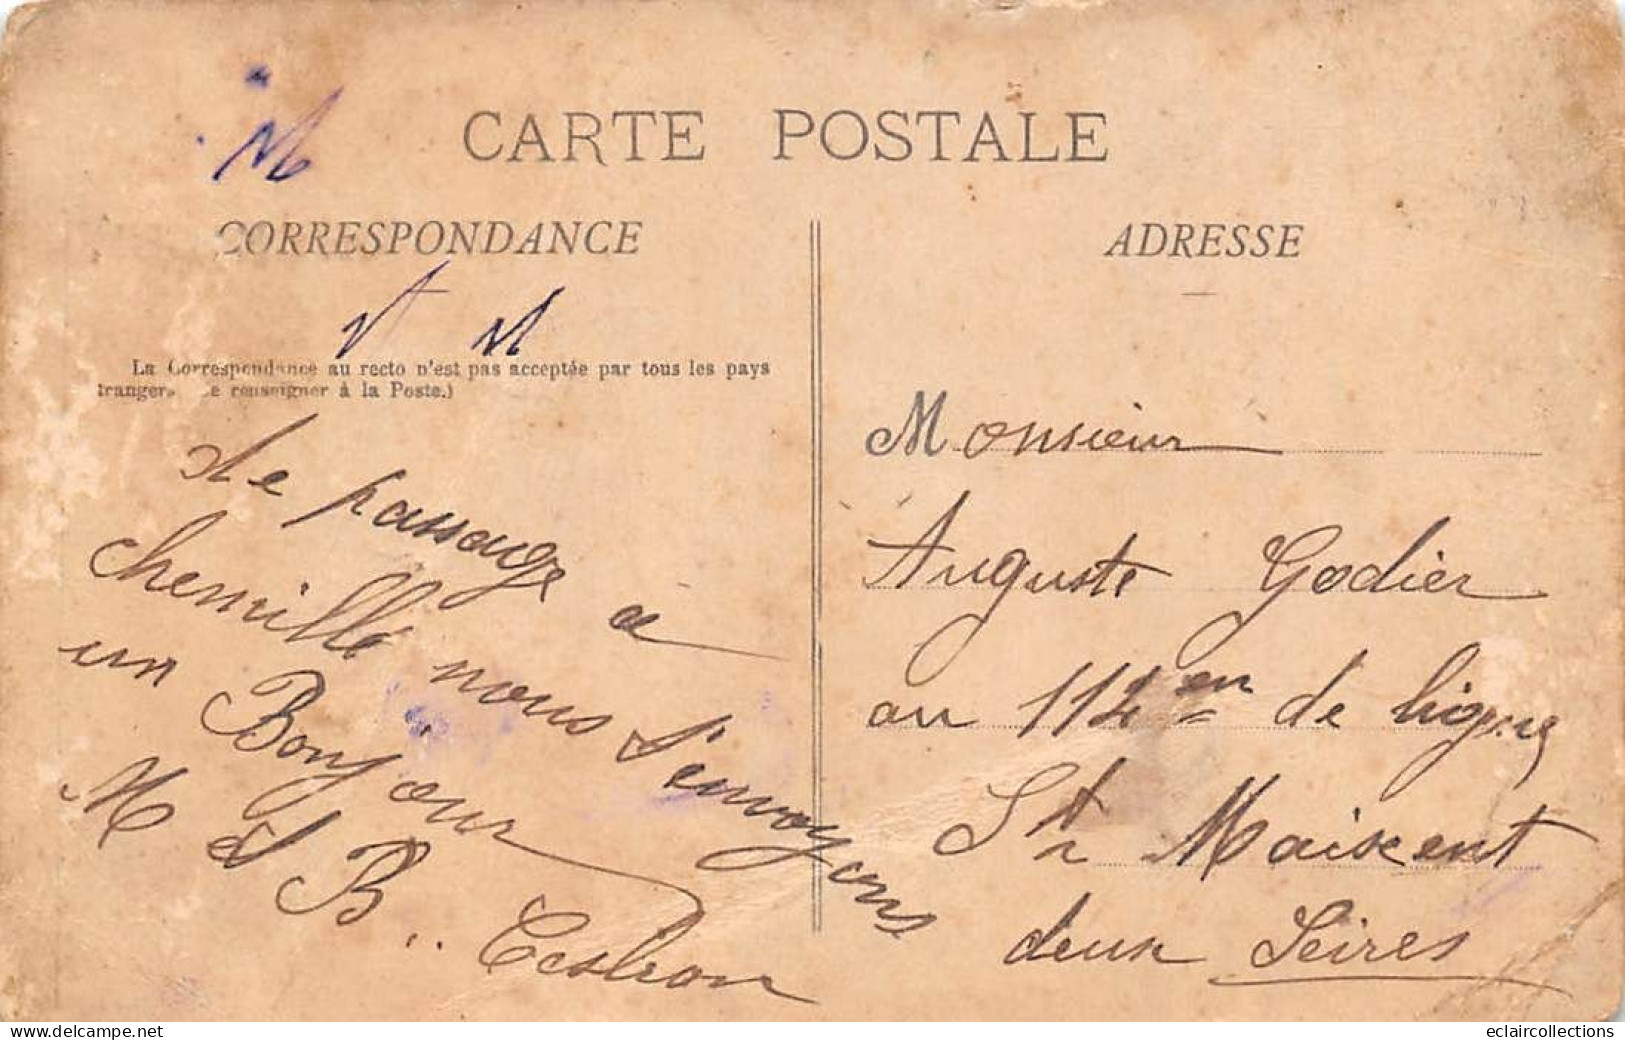 CARTE POSTALE
CORRESPONDANCE
La Correspondance au recto n'est pas acceptée par tous les pays
trangers e renseigner à la Poste.)
de passauge a
chemillé nous s'envoyons
un Bonjour
M et B..
ADRESSE
Monsieur
Auguste Godier
au 114 en de
St Maixent
deux Seires
www.delcampe.net
eclaircollections